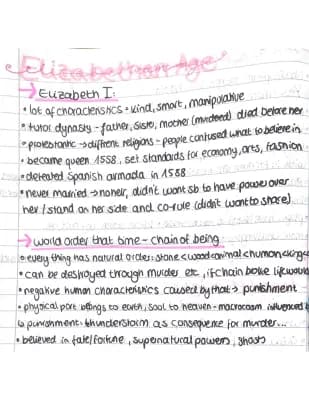 Elizabethan Age
→ Elizabeth I:
• lot of characteristics - kind, smart, manipulative
• tutor dynasty - father, sister, mother (murdered) died before her
• protestantic → diffrent religions - people confused what to believe in
• became queen 1558, set standards for economy, arts, fashion
• defeated Spanish armada in 1588
• never married → no heir, didn't want sb to have power over
her / stand on her side and co-rule (didn't want to share)
→ world order that time - chain of being
• every thing has natural order: stone < wood < animal < human < king <
• can be destroyed through murder etc, if chain broke life would
• negative human characteristics caused by that → punishment
• physical part belongs to earth, soul to heaven - macrocosm influenced
↳ punishment: thunderstorm as consequence for murder...
• believed in fate/fortune, supernatural powers, ghosts